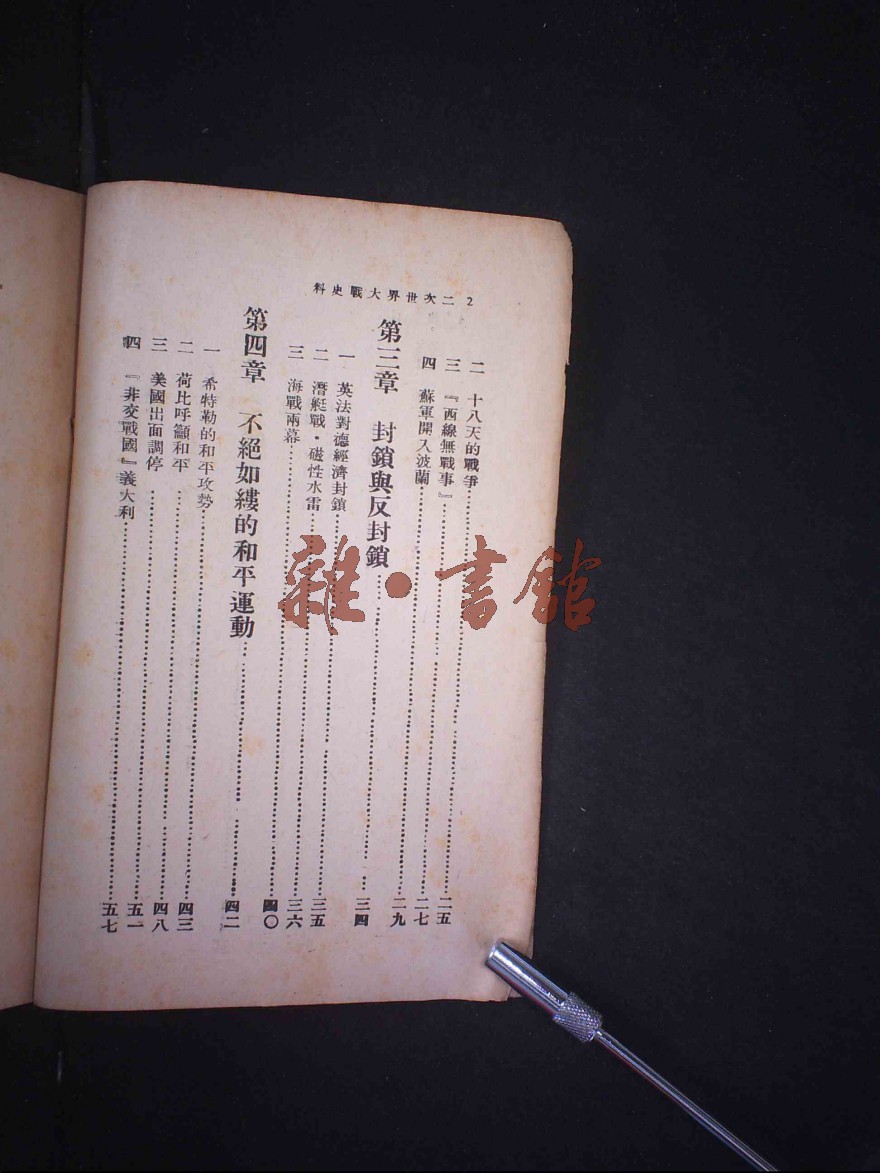 2 二次世界大戰史料
二 十八天的戰爭……二五
三 『西線無戰事』……二七
四 蘇軍開入波蘭……二九
第三章 封鎖與反封鎖……三四
一 英法對德經濟封鎖……三五
二 潛艇戰・磁性水雷……三六
三 海戰兩幕……四〇
第四章 不絕如縷的和平運動……四二
一 希特勒的和平攻勢……四三
二 荷比呼籲和平……四八
三 美國出面調停……五一
四 『非交戰國』義大利……五七
雜・書館